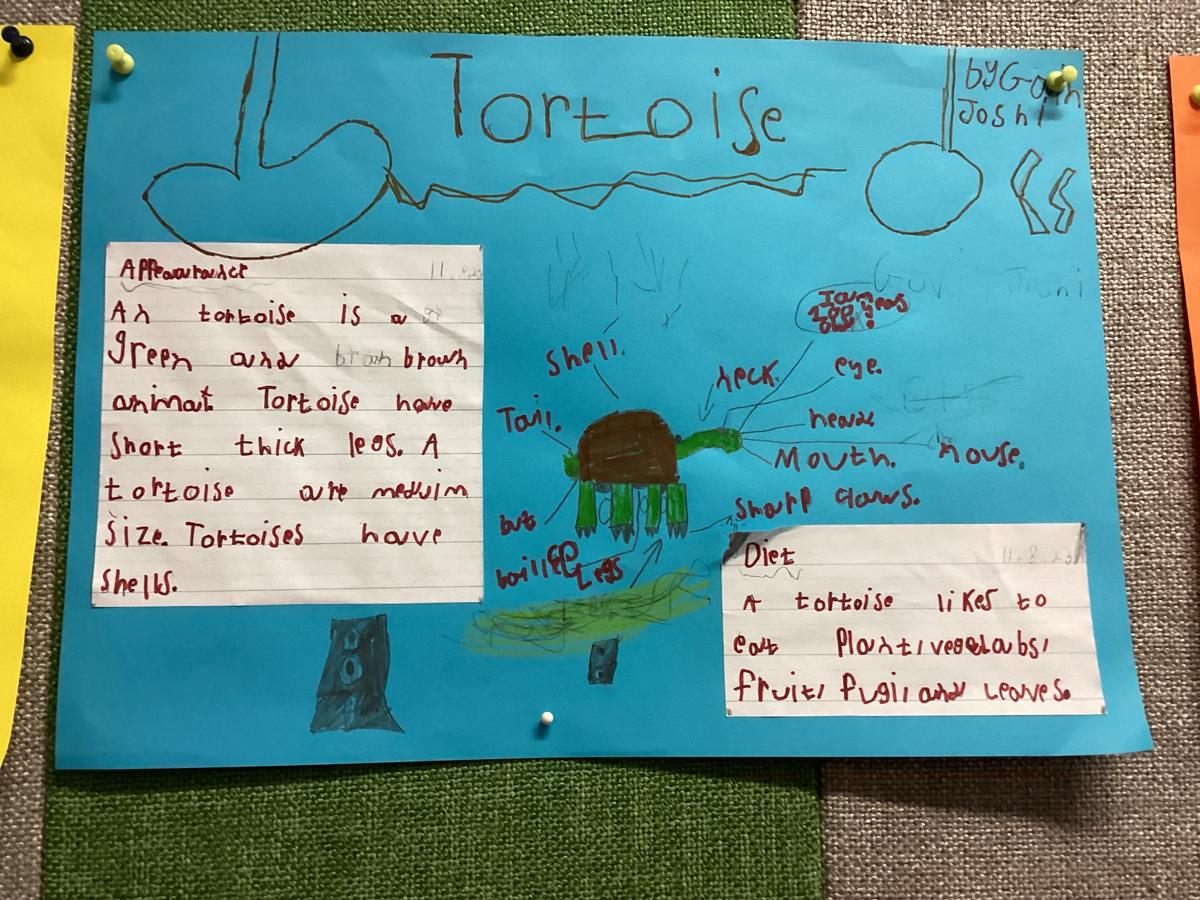 Tortoise
Joshi
Appearance
11.8.23
An tortoise is a
green and brown
animal. Tortoise have
short thick legs. A
tortoise are meduim
size. Tortoises have
shells.
I am
100 years
old!
shell.
neck.
eye.
Tail.
head
Mouth.
nouse.
sharp claws.
but
Legs
Diet
11.8.23
A tortoise likes to
eat
fruit, fugi, and leaves.